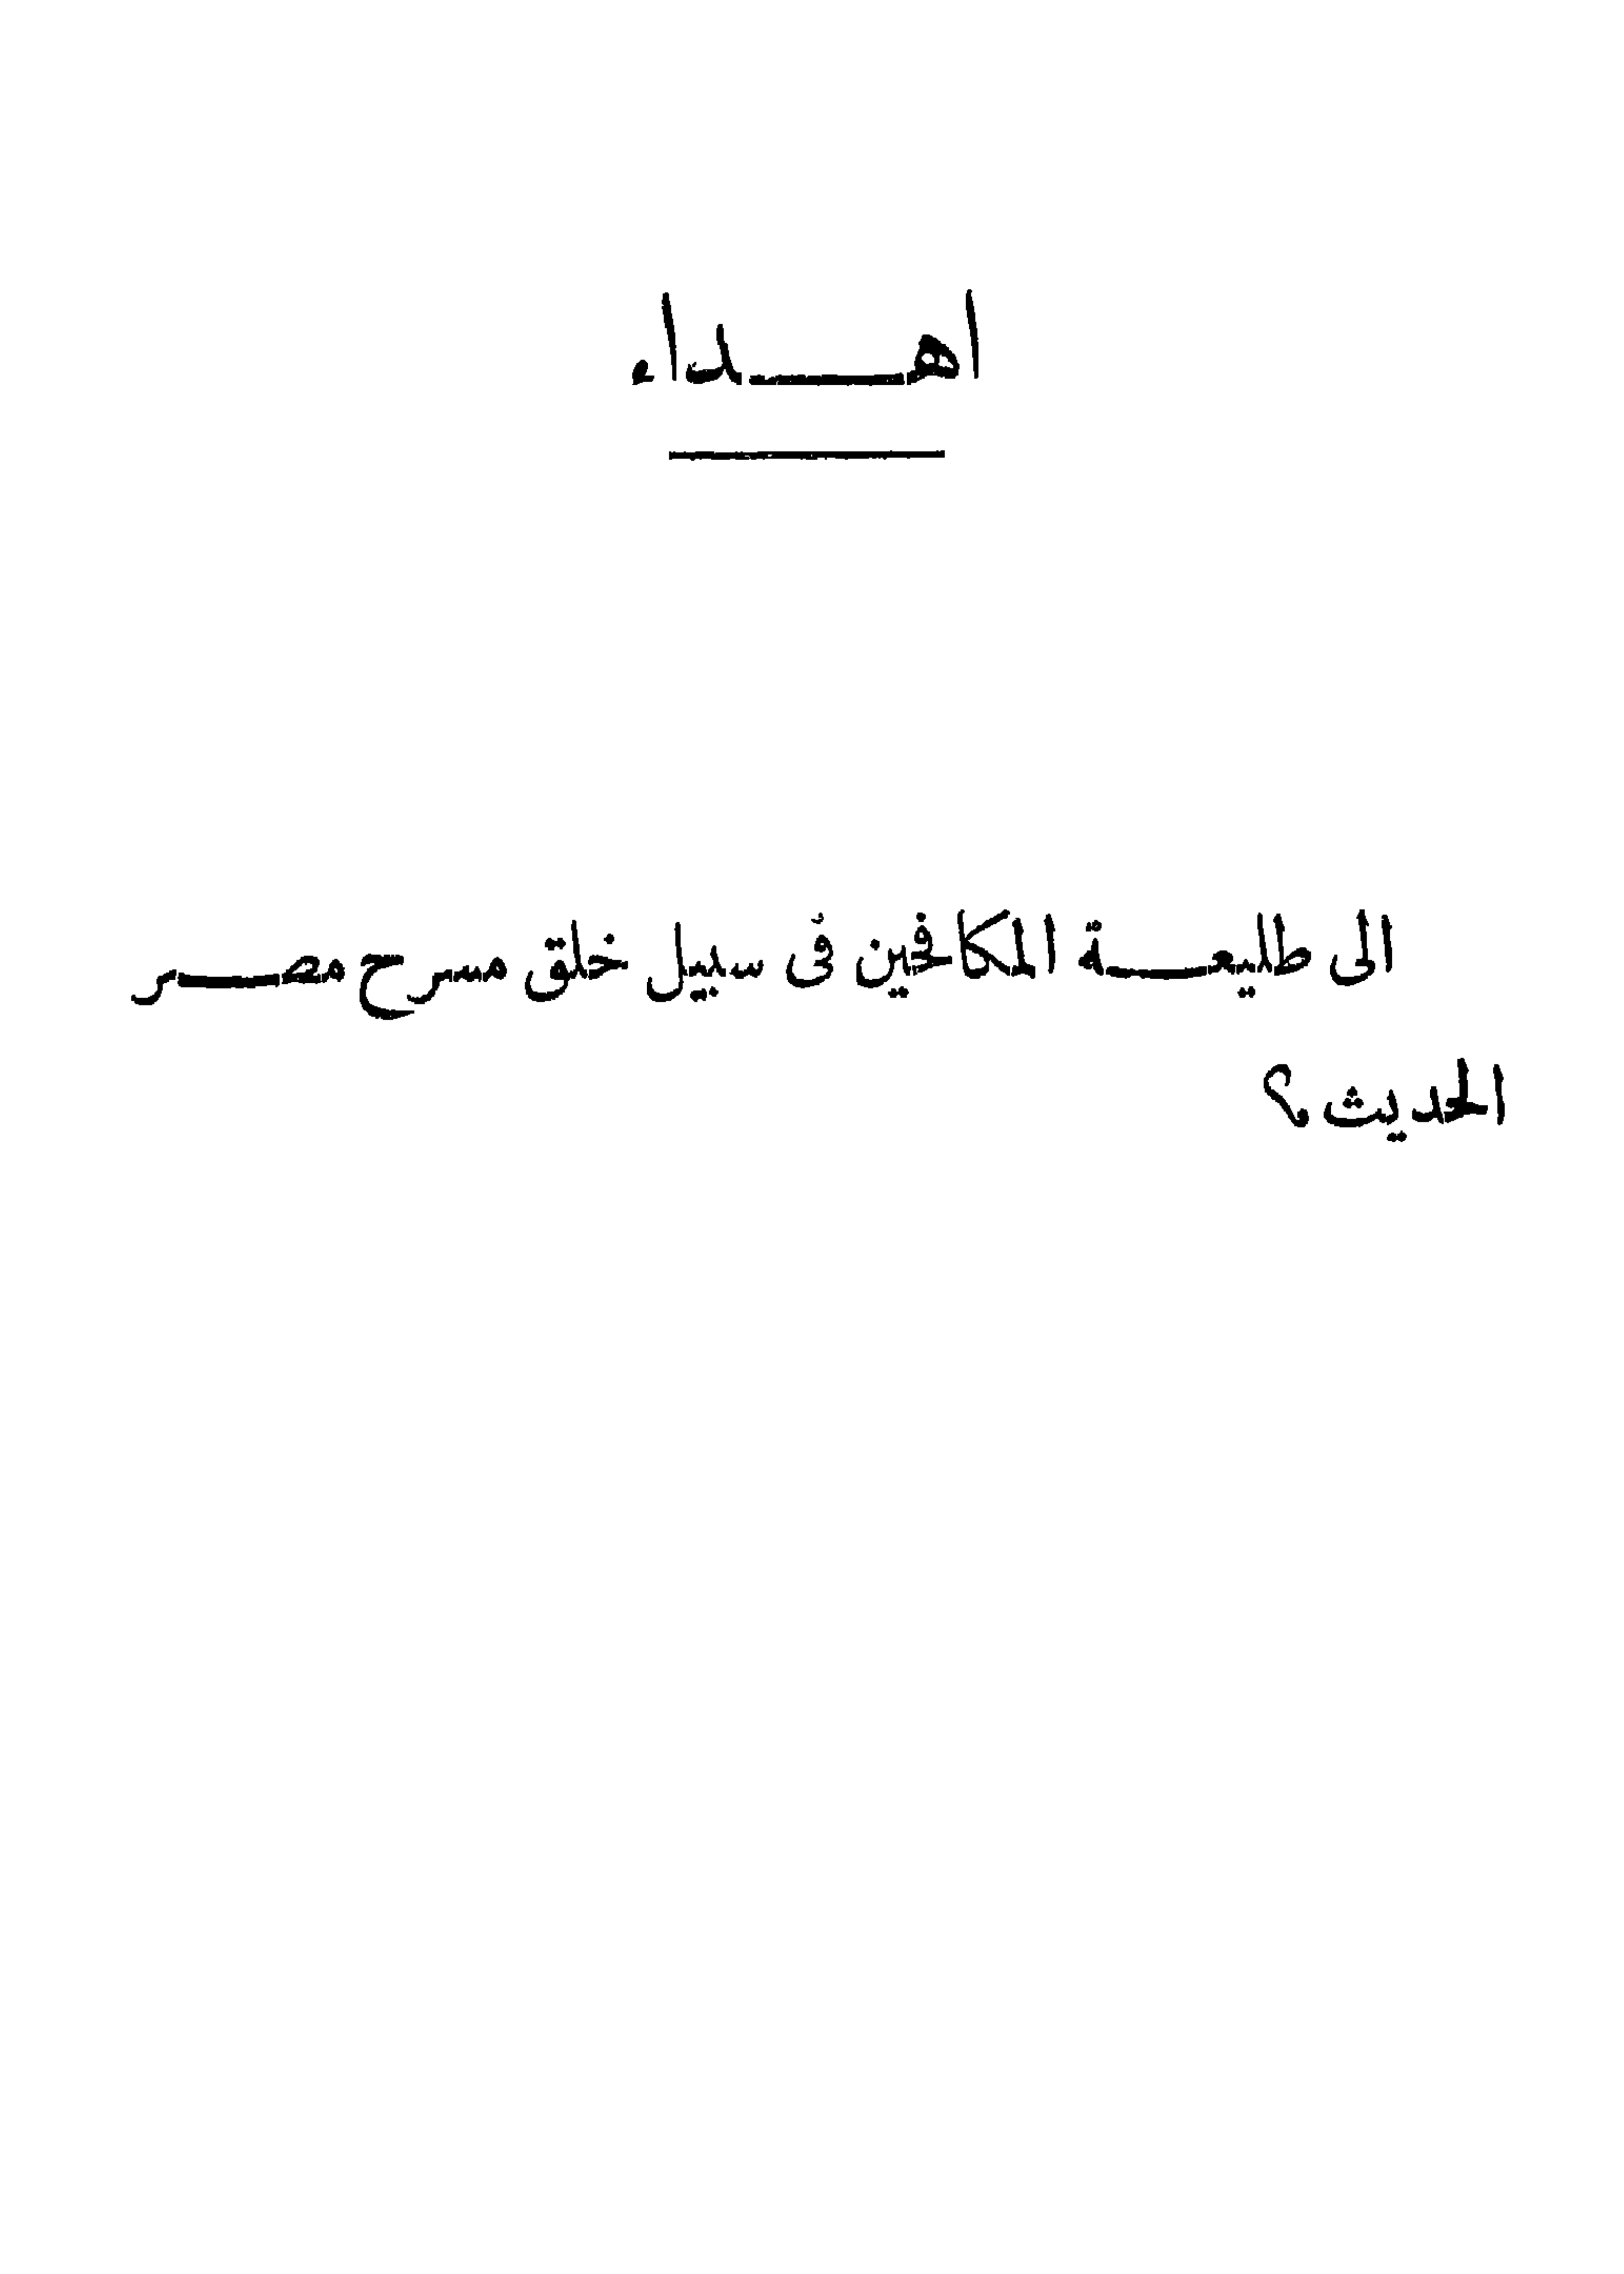 اهـــداء
الى طليعـــة المكافحين فى سبيل خلق مسرح مصـــر
الحديث؟